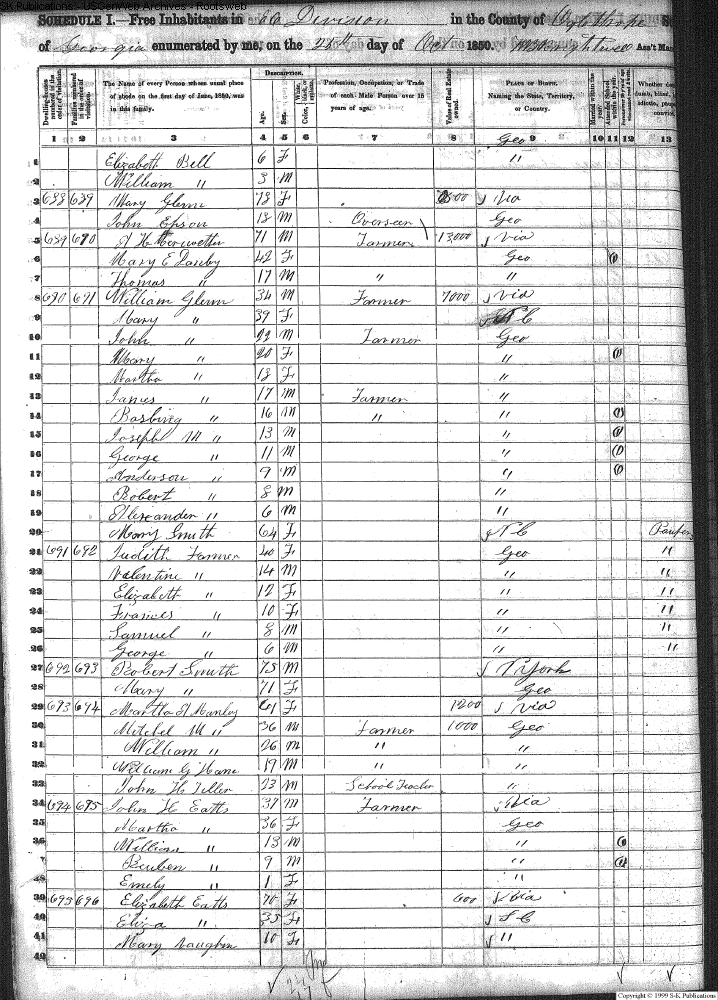 SK Publications - USGenWeb Archives - Rootsweb
SCHEDULE I.—Free Inhabitants in 66 Division in the County of Oglethorpe
of Georgia enumerated by me, on the 25th day of Oct 1850. Ass't Mar
Dwelling-houses numbered in the order of visitation. Families numbered in the order of visitation. The Name of every Person whose usual place of abode on the first day of June, 1850, was in this family. Description. Age. Sex. Color Profession, Occupation, or Trade of each Male Person over 15 years of age. Value of Real Estate owned. Place of Birth. Naming the State, Territory, or Country. Married within the year. Attended School within the year. Whether dumb, blind, idiotic, convict
1 2 3 4 5 6 7 8 9 10 11 12 13
Geo
1 Elizabeth Bell 6 F "
2 William " 3 M
3 688 689 Mary Glenn 78 F 500 Via
4 John Epson 18 M Overseer Geo
5 689 690 71 M Farmer 13,000 Via
6 Mary E 42 F Geo
7 Thomas " 17 M " "
8 690 691 William Glenn 34 M Farmer 7000 Via
9 Mary " 39 F N C
10 John " 22 M Farmer Geo
11 Mary " 20 F "
12 Martha " 18 F "
13 James " 17 M Farmer "
14 " 16 M " "
15 Joseph M " 13 M "
16 George " 11 M "
17 Anderson " 9 M "
18 Robert " 8 M "
19 Alexander " 6 M "
20 Mary Smith 64 F N C Pauper
21 691 692 Judith Farmer 40 F Geo "
22 Valentine " 14 M " "
23 Elizabeth " 12 F " "
24 Frances " 10 F " "
25 Samuel " 8 M " "
26 George " 6 M " "
27 692 693 Robert Smith 75 M N York
28 Mary " 71 F Geo
29 693 694 Martha A Manley 61 F 1200 Via
30 Mitchel M " 36 M Farmer 1000 Geo
31 William " 26 M " "
32 William G 19 M " "
33 John H Tiller 23 M School Teacher "
34 694 695 John H Eatts 37 M Farmer Via
35 Martha " 36 F Geo
36 William " 13 M "
Reuben " 9 M "
38 Emily " 1 F "
39 695 696 Elizabeth Eatts 70 F 600 Via
40 Eliza " 35 F S C
41 Mary Vaughn 10 F "
42
Copyright © 1999 S-K Publications